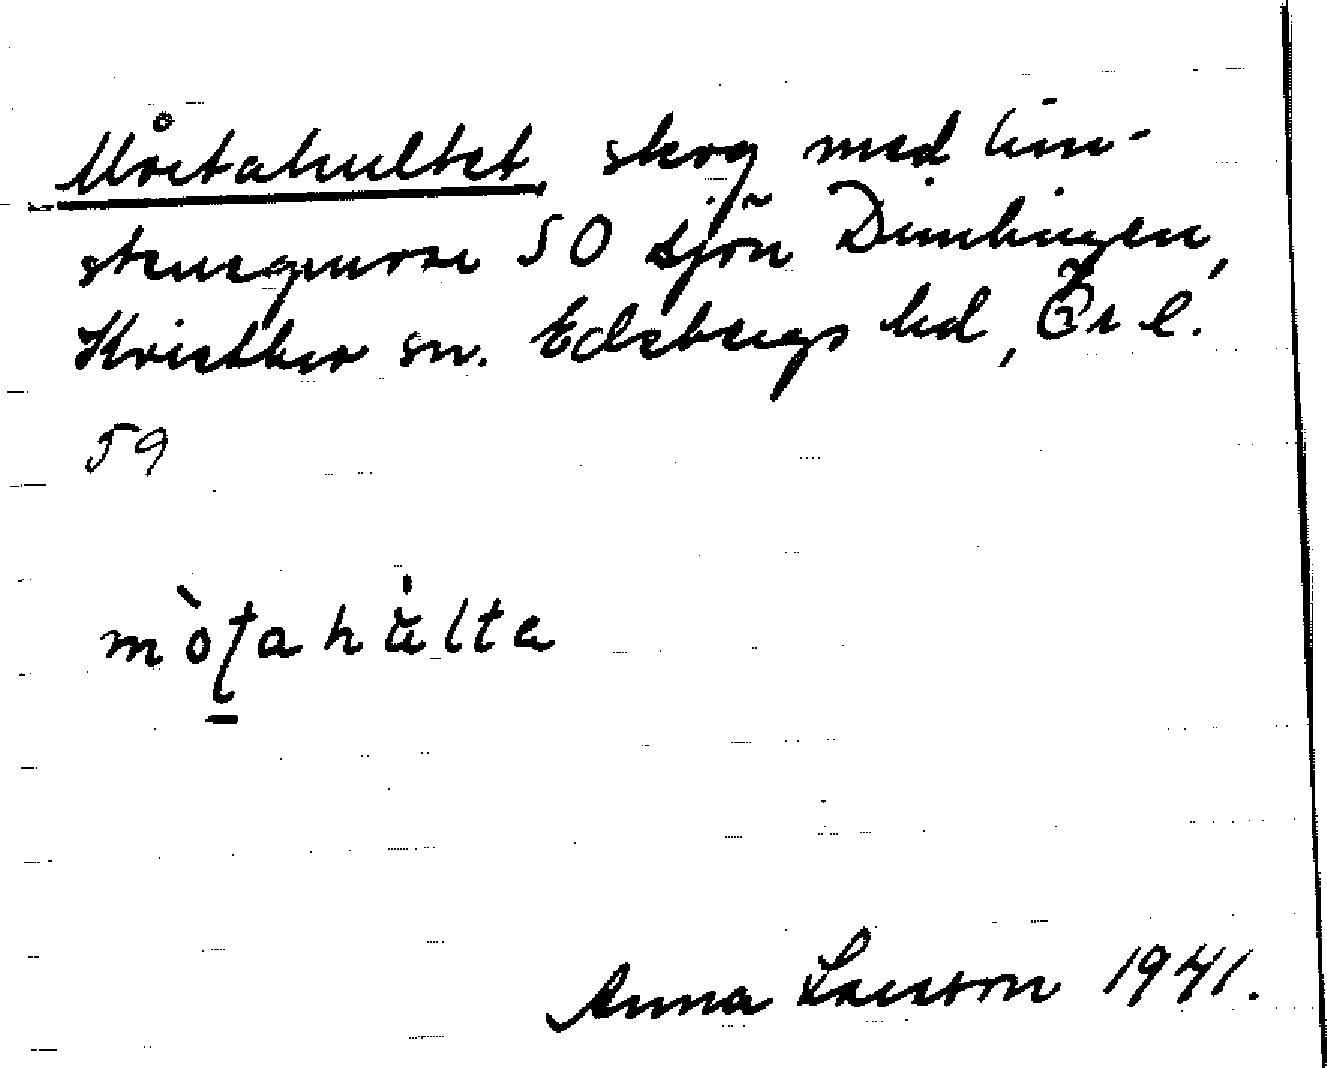 Mårtahultet, skog med lim-
stensgruvor SO sjön Dimlingen,
Kvistbro sn. Edsbergs hd, Ör l.
59
mòʈahàlta
Anna Larsson 1941.